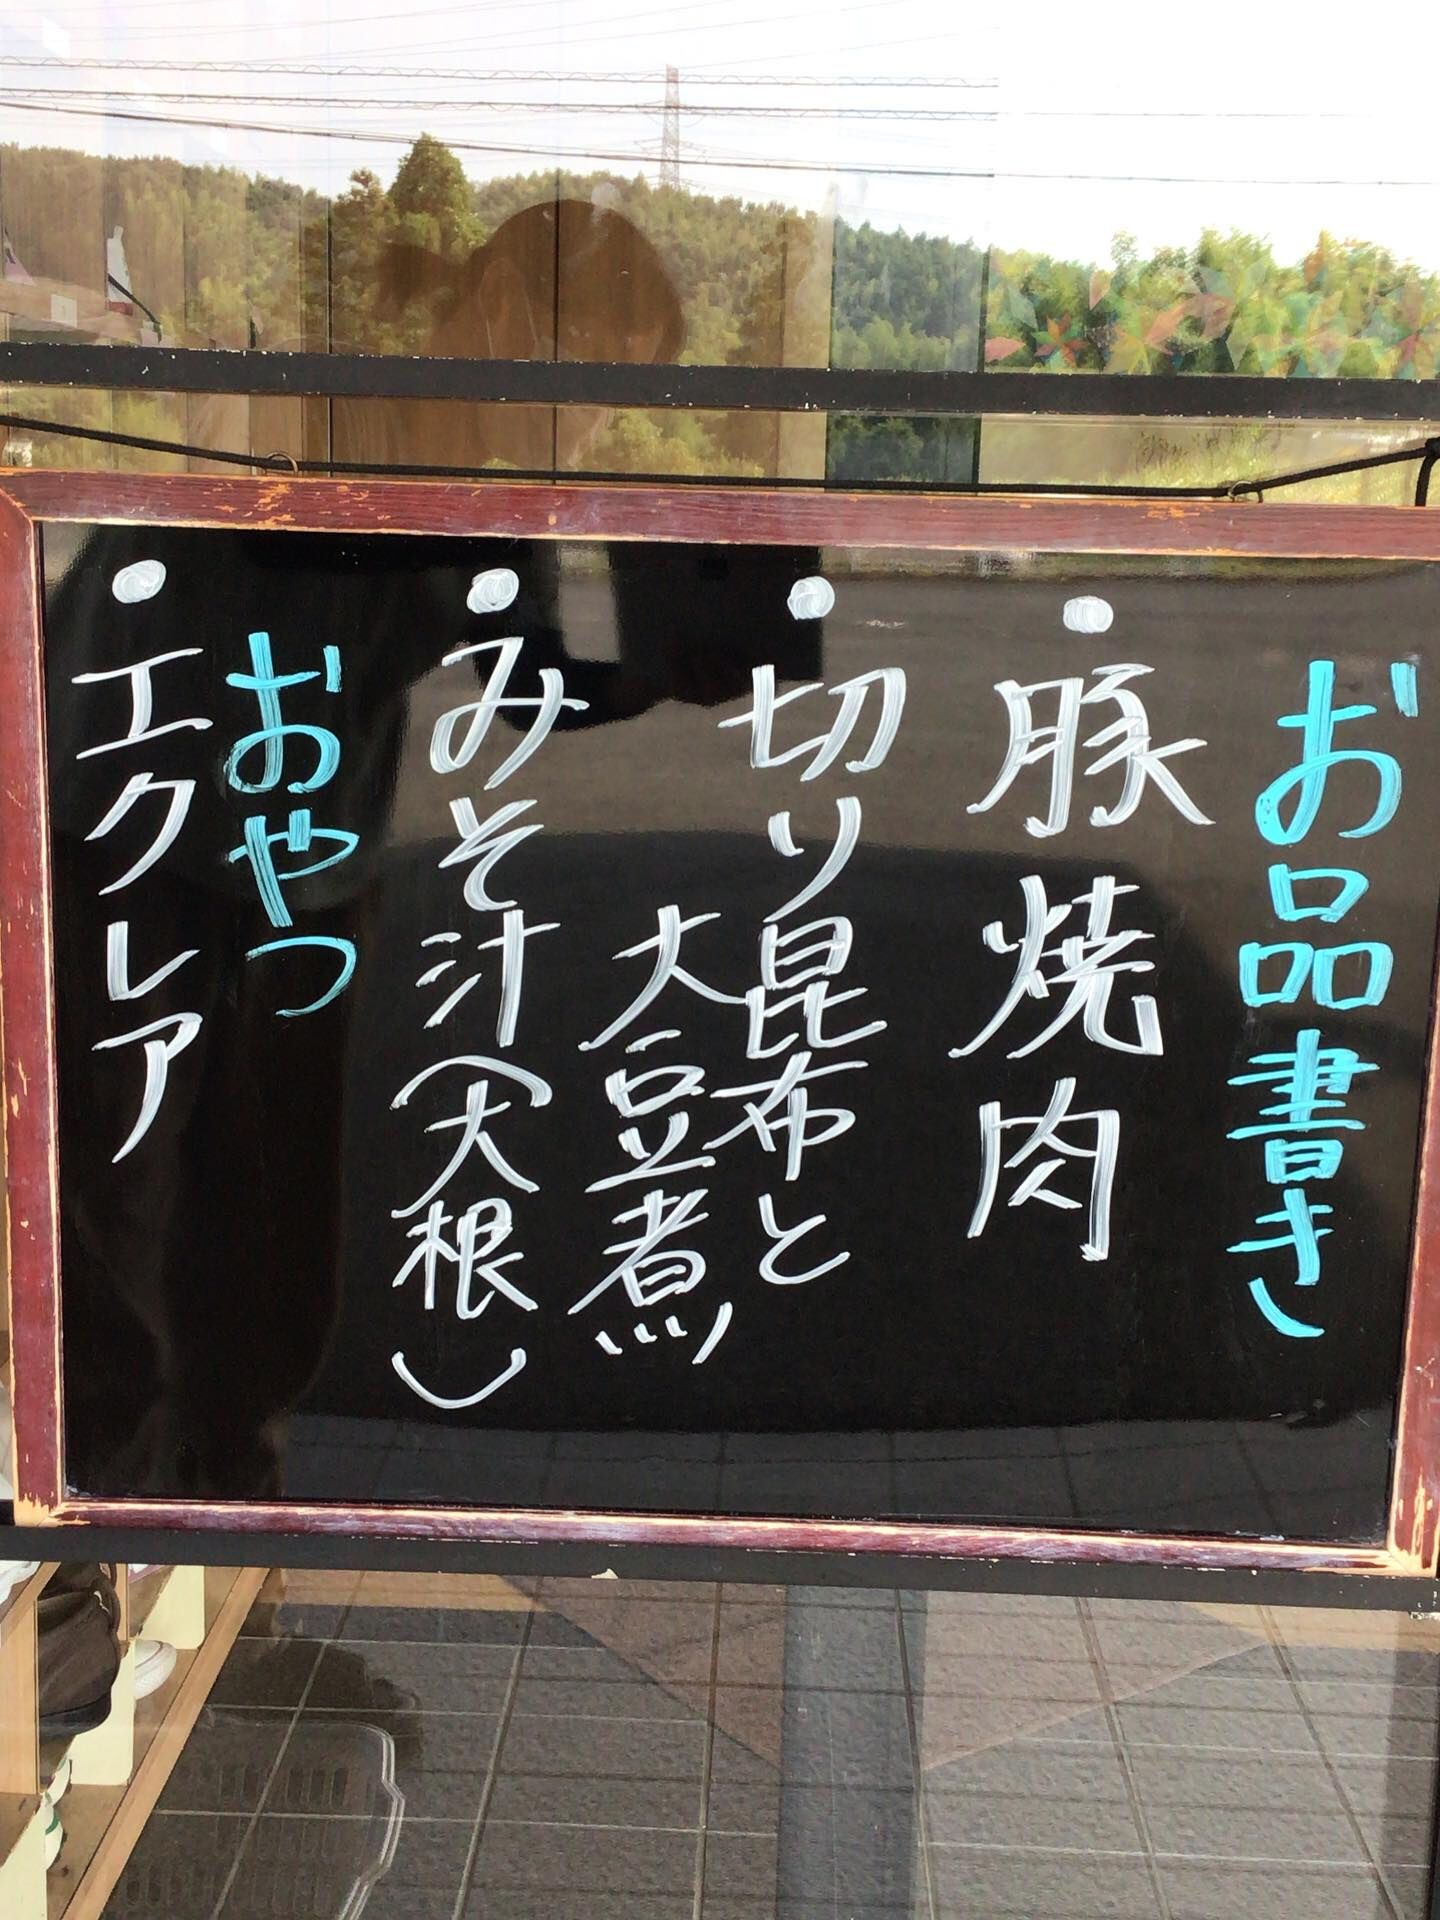 お品書き
・豚焼肉
・切り昆布と
大豆煮
・みそ汁(大根)
おやつ
・エクレア